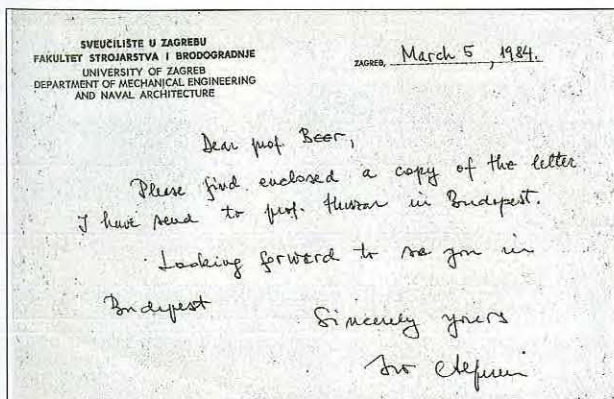 SVEUČILIŠTE U ZAGREBU
FAKULTET STROJARSTVA I BRODOGRADNJE
UNIVERSITY OF ZAGREB
DEPARTMENT OF MECHANICAL ENGINEERING
AND NAVAL ARCHITECTURE
ZAGREB, March 5, 1984.
Dear prof. Beer,
Please find enclosed a copy of the letter
I have send to prof. Huszar in Budapest.
Looking forward to se you in
Budapest
Sincerely yours
Ivo